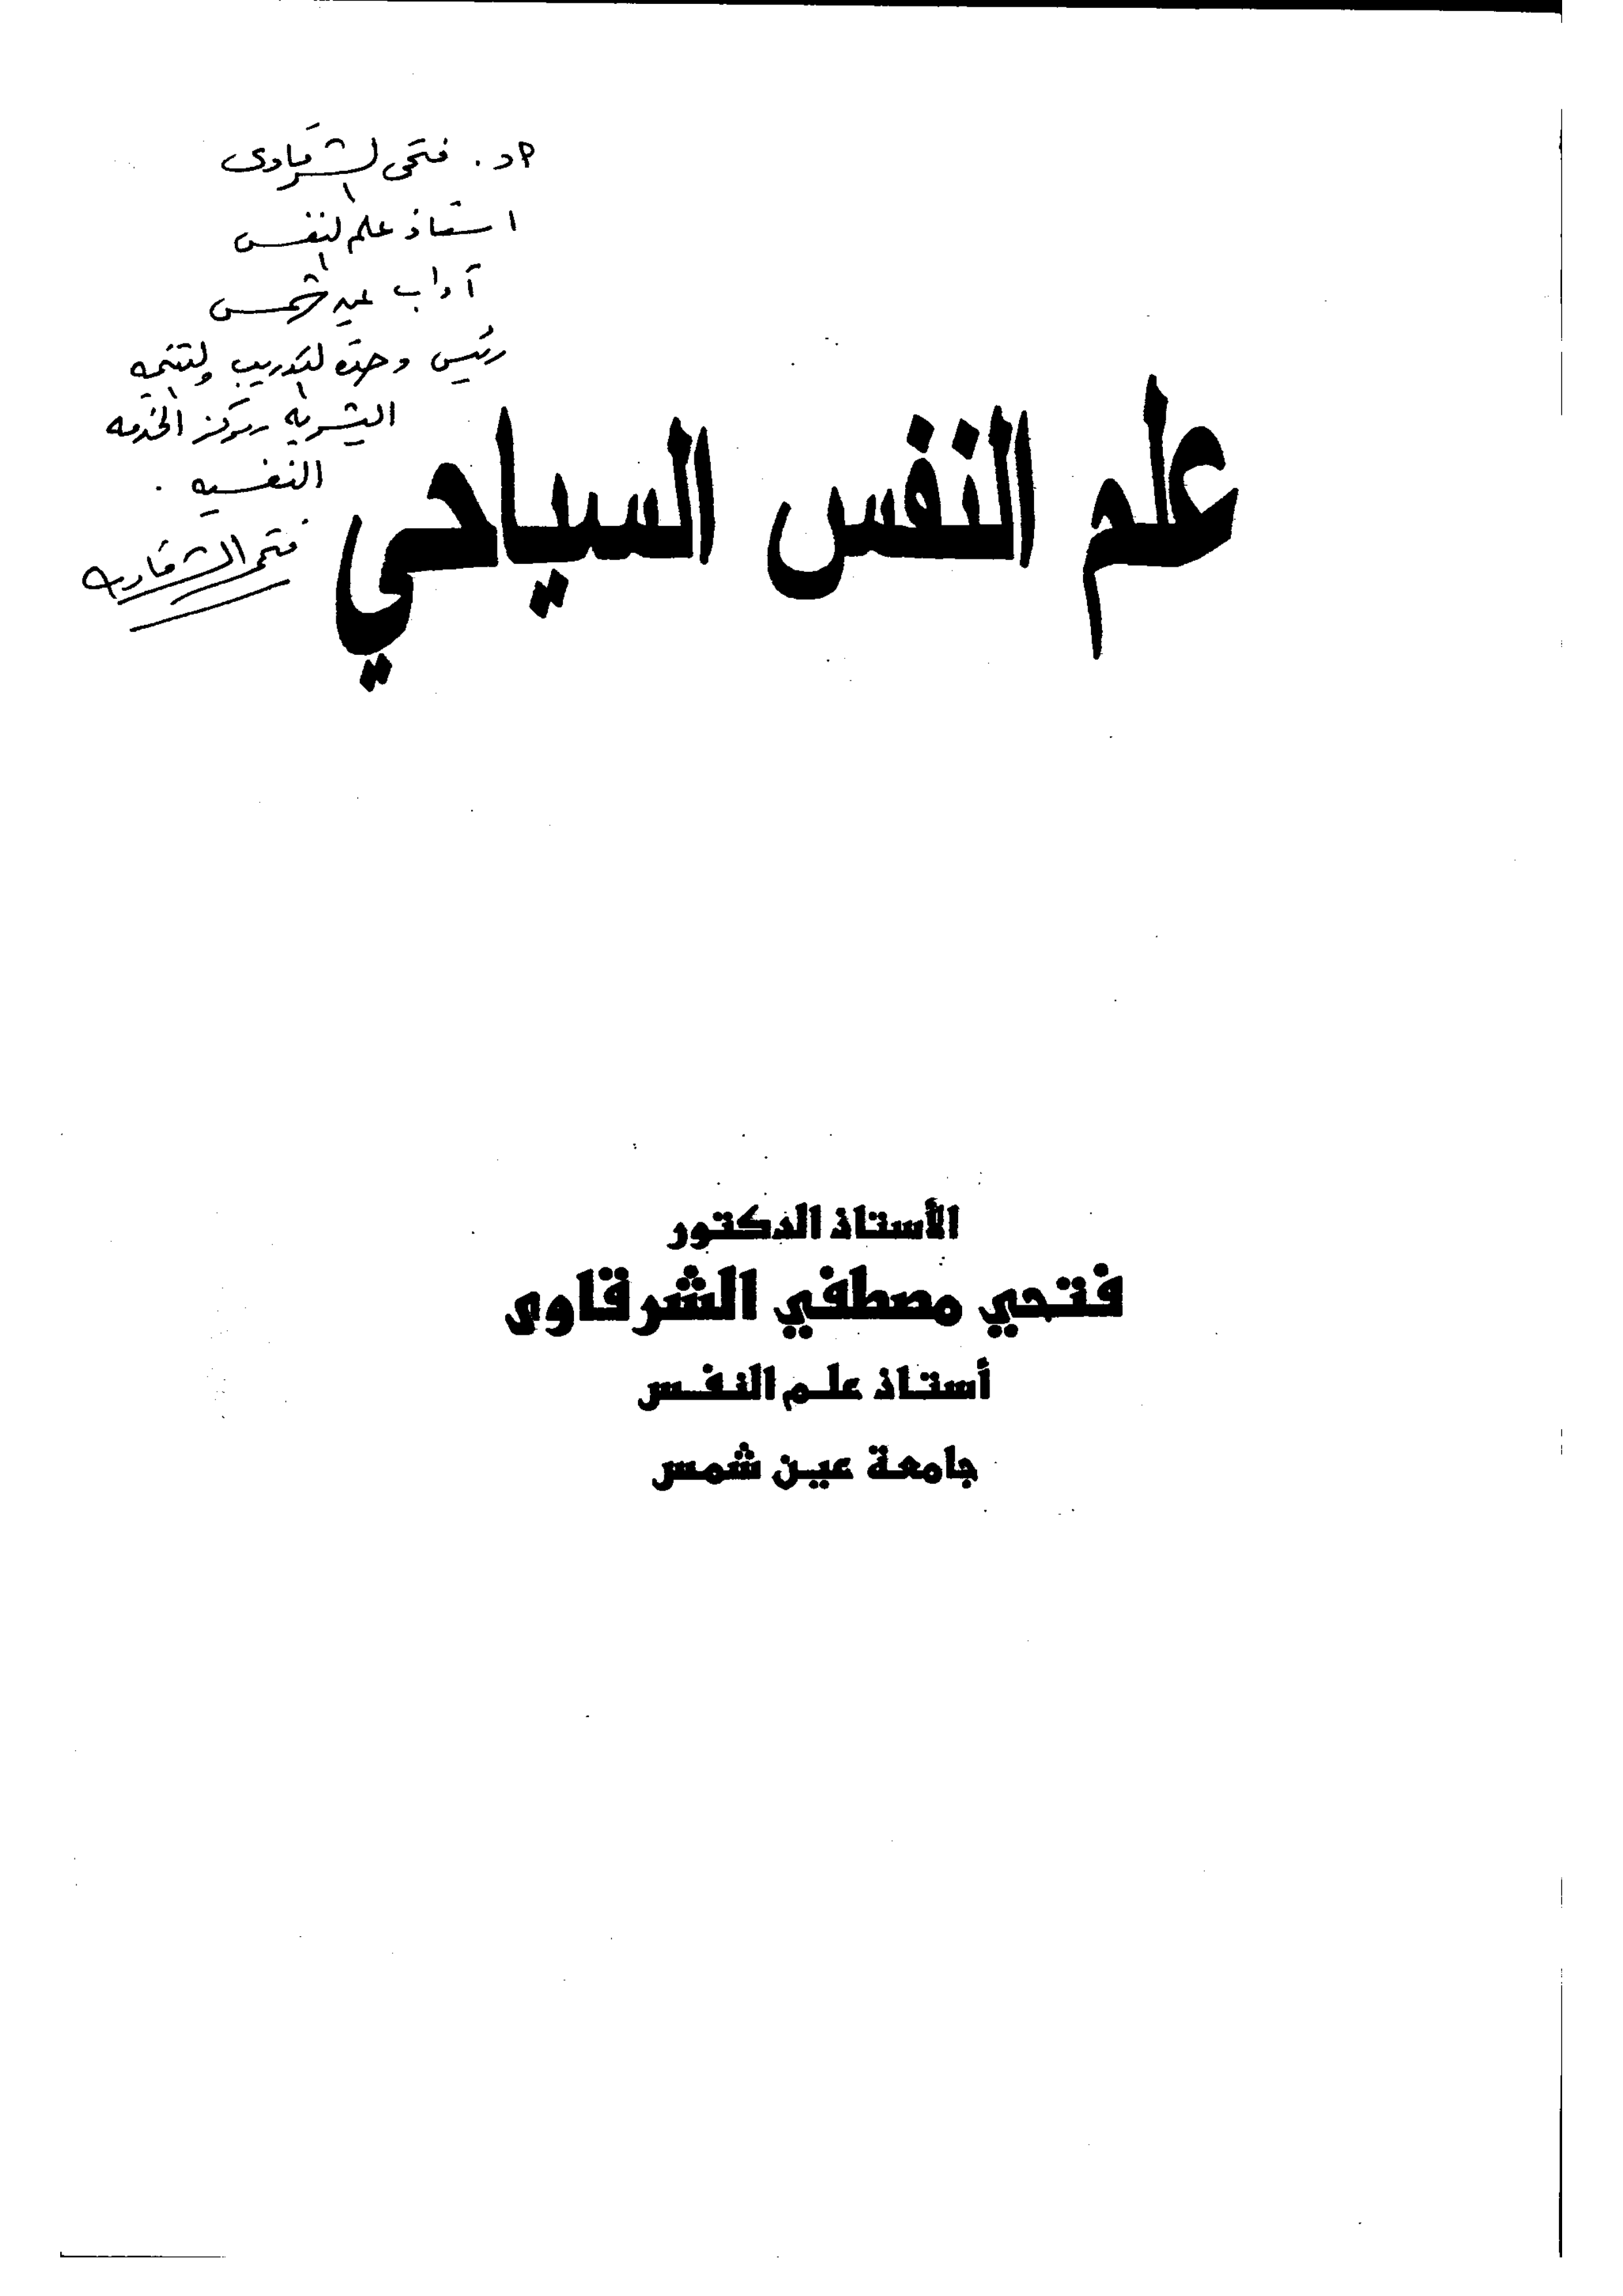 أ.د. فتحى الشرقاوى
استاذ علم النفس
آداب عين شمس
رئيس وحدة التدريب والتنميه
البشريه بمركز الخدمه
النفسيه .
فتحى الشرقاوى
علم النفس السياحي
الأستاذ الدكتور
فتحي مصطفي الشرقاوى
أستاذ علم النفس
جامعة عين شمس